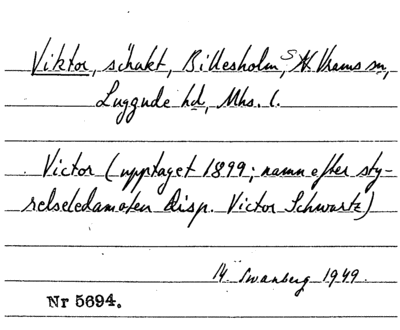 Viktor, schakt, Billesholm, N. Vrams sn,
Luggude hd, Mhs. l.
Victor (upptaget 1899; namn efter sty-
relseledamoten disp. Victor Schwartz)
Swanberg 1949.
Nr 5694.